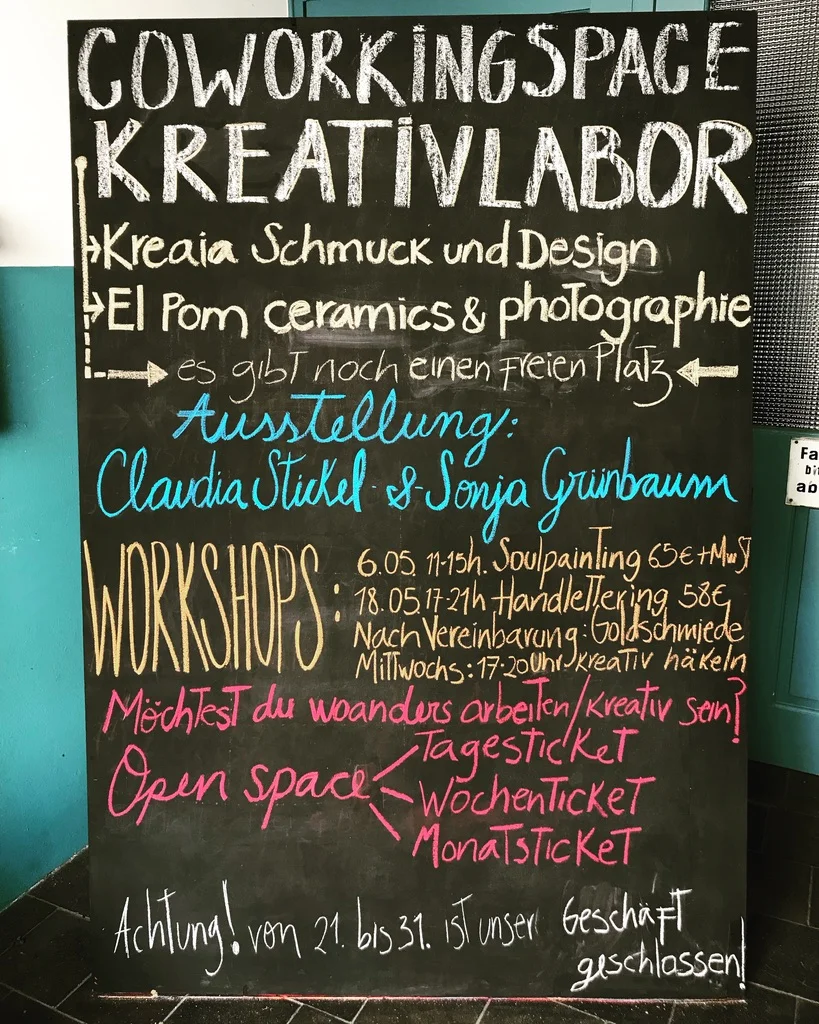 COWORKINGSPACE
KREATIVLABOR
Kreaia Schmuck und Design
El Pom ceramics & photographie
es gibt noch einen freien Platz
Ausstellung:
Claudia Stickel & Sonja Grünbaum
WORKSHOPS:
6.05. 11-15h. Soulpainting 65€ + MwSt
18.05 17-21h Handlettering 58€
Nach Vereinbarung: Goldschmiede
Mittwochs: 17-20Uhr kreativ häkeln
Möchtest du woanders arbeiten/kreativ sein?
Open space
Tagesticket
Wochenticket
Monatsticket
Achtung! von 21. bis 31. ist unser Geschäft
geschlossen!
Fa
bi
ab